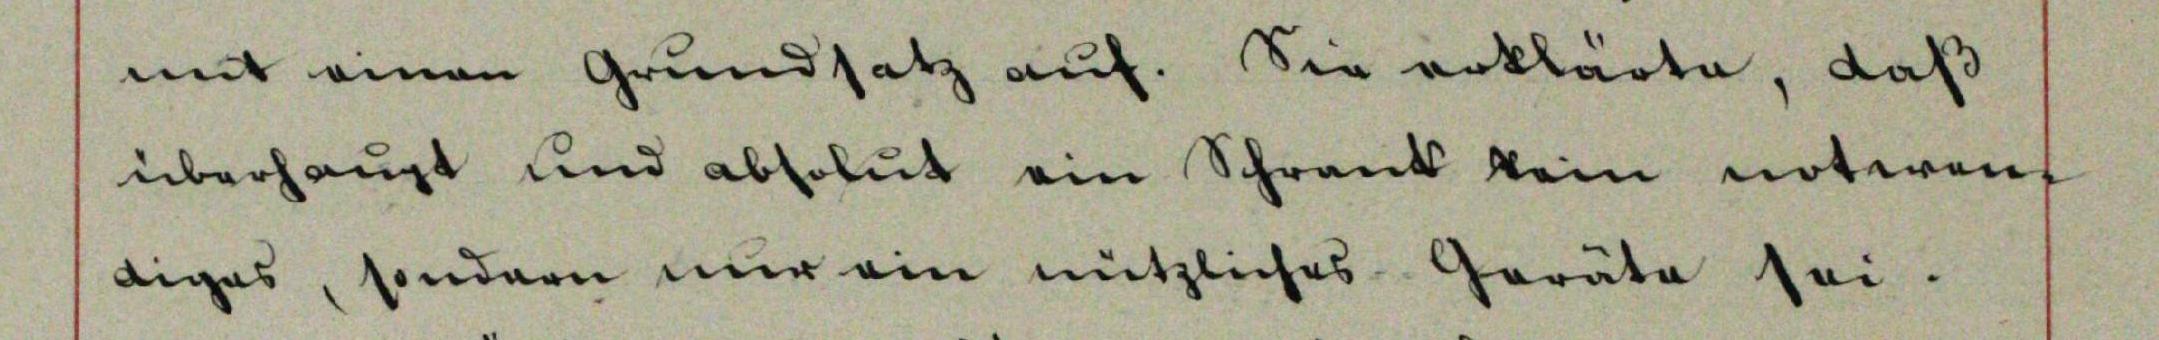 mit einen Grundsatz auf. Sie erklärte, daß
überhaupt und absolut ein Schrank kein notwen-
diges, sondern nur ein nützliches Geräte sei.